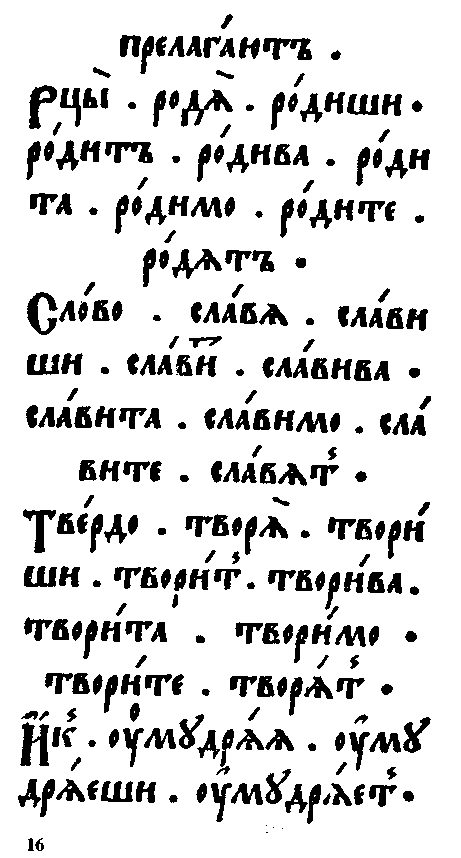 прелага́ютъ .
Рцы̀ . родѧ̀ . ро́диши .
ро́дитъ . ро́дива . ро́ди
та . ро́димо . ро́дите .
ро́дѧтъ .
Сло́во . сла́вѧ . сла́ви
ши . сла́виⷮ . сла́вива .
сла́вита . сла́вимо . сла́
вите . сла́вѧт̾ .
Тве́рдо . творѧ̀ . твори́
ши . твори́т̾ . твори́ва .
твори́та . твори́мо .
твори́те . творѧ́т̾ .
И҆́к̾ . ѹ҆мꙋдрѧ́ѧ . ѹ҆мꙋ
дрѧ́еши . ѹ҆мꙋдрѧ́ет̾ .
16